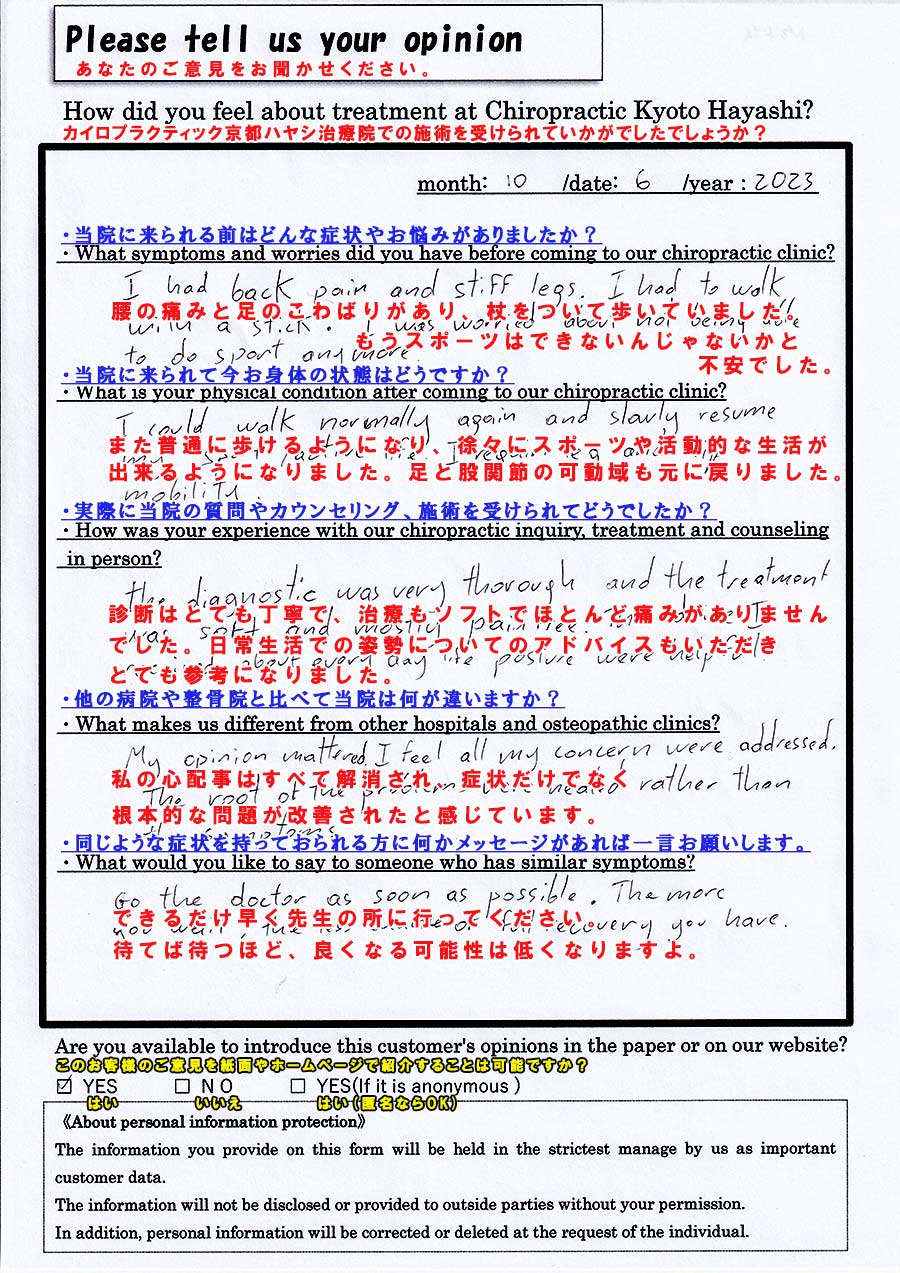 Please tell us your opinion
あなたのご意見をお聞かせください。
How did you feel about treatment at Chiropractic Kyoto Hayashi?
カイロプラクティック京都ハヤシ治療院での施術を受けられていかがでしたでしょうか？
month: 10 /date: 6 /year : 2023
・当院に来られる前はどんな症状やお悩みがありましたか？
・What symptoms and worries did you have before coming to our chiropractic clinic?
I had back pain and stiff legs. I had to walk
腰の痛みと足のこわばりがあり、杖をついて歩いていました。
with a stick. I was worried about not being able
もうスポーツはできないんじゃないかと
to do sport anymore.
不安でした。
・当院に来られて今お身体の状態はどうですか？
・What is your physical condition after coming to our chiropractic clinic?
I could walk normally again and slowly resume
また普通に歩けるようになり、徐々にスポーツや活動的な生活が
出来るようになりました。足と股関節の可動域も元に戻りました。
mobility.
・実際に当院の質問やカウンセリング、施術を受けられてどうでしたか？
・How was your experience with our chiropractic inquiry, treatment and counseling
in person?
the diagnostic was very thorough and the treatment
診断はとても丁寧で、治療もソフトでほとんど痛みがありません
was soft and mostly painless. I
でした。日常生活での姿勢についてのアドバイスもいただき
about every day life posture were helpful.
とても参考になりました。
・他の病院や整骨院と比べて当院は何が違いますか？
・What makes us different from other hospitals and osteopathic clinics?
My opinion mattered. I feel all my concern were addressed.
私の心配事はすべて解消され、症状だけでなく
The root of the problem were healed rather than
根本的な問題が改善されたと感じています。
symptoms
・同じような症状を持っておられる方に何かメッセージがあれば一言お願いします。
・What would you like to say to someone who has similar symptoms?
Go the doctor as soon as possible. The more
できるだけ早く先生の所に行ってください。
you wait, the less chance of full recovery you have.
待てば待つほど、良くなる可能性は低くなりますよ。
Are you available to introduce this customer's opinions in the paper or on our website?
このお客様のご意見を紙面やホームページで紹介することは可能ですか？
☑ YES □ NO □ YES(If it is anonymous )
はい いいえ はい（匿名ならOK）
《About personal information protection》
The information you provide on this form will be held in the strictest manage by us as important
customer data.
The information will not be disclosed or provided to outside parties without your permission.
In addition, personal information will be corrected or deleted at the request of the individual.